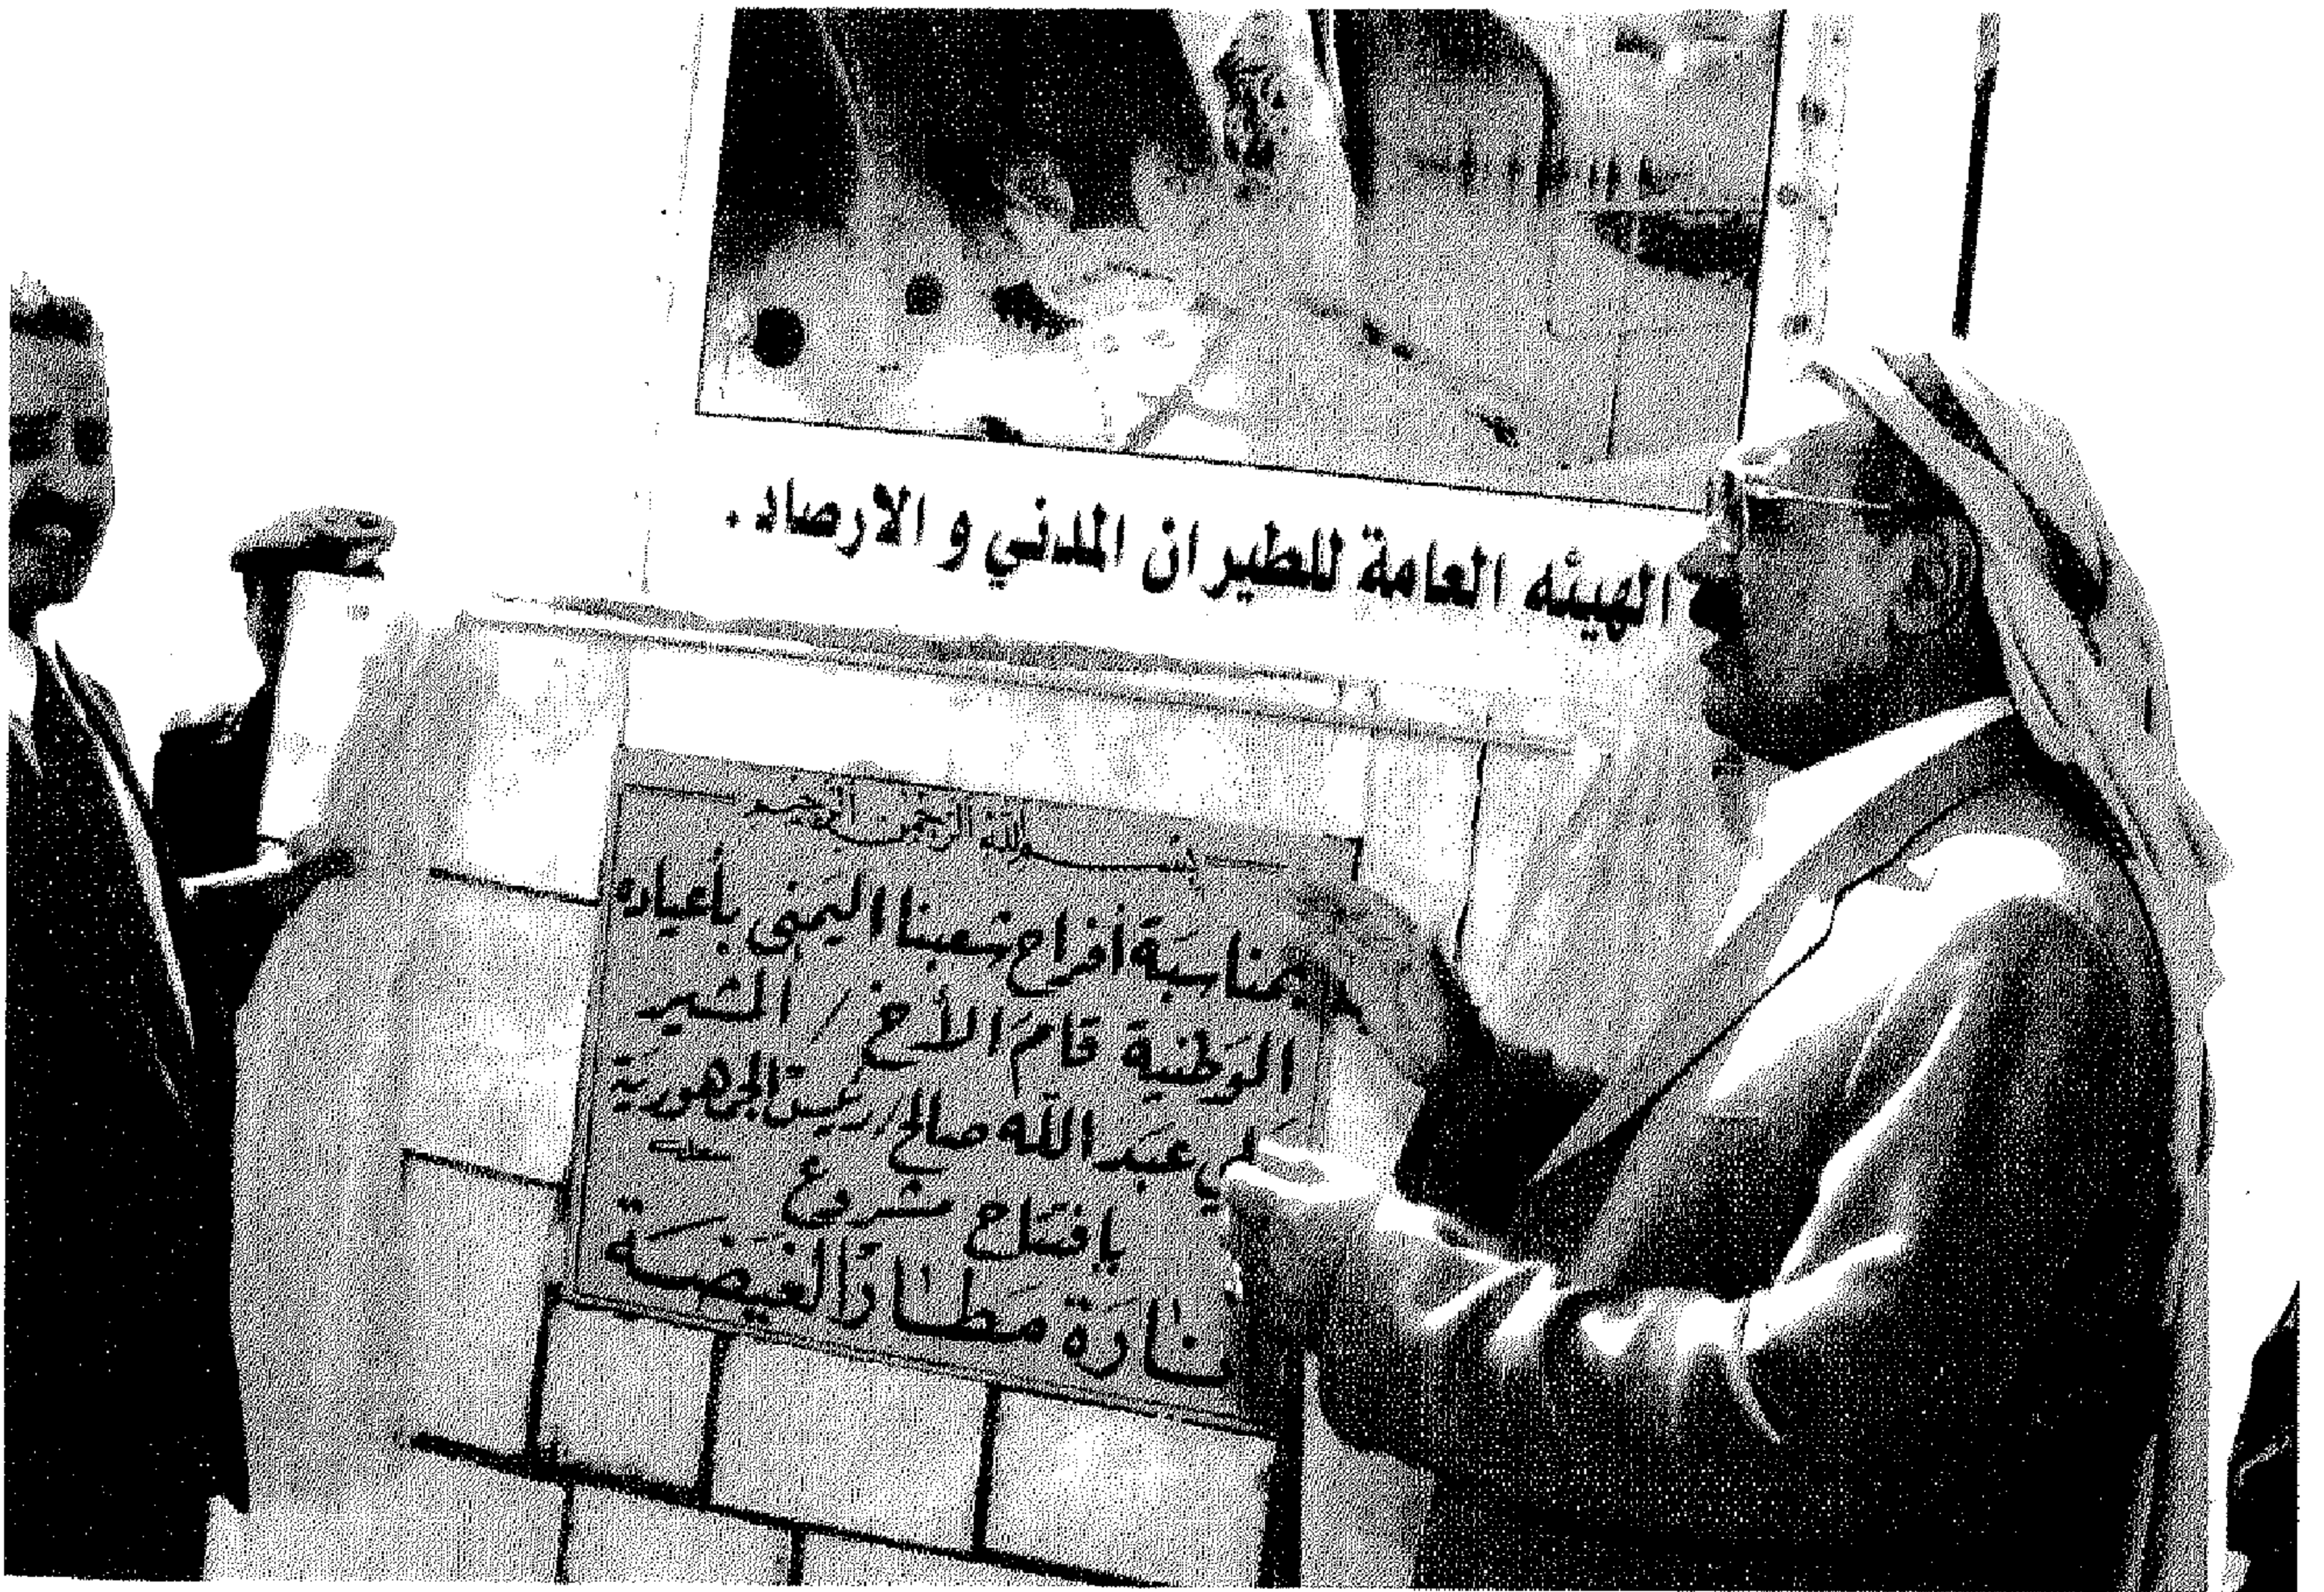 الهيئه العامة للطيران المدني و الارصاد.
بسم الله الرحمن الرحيم
بمناسبة أفراح شعبنا اليمني بأعياده
الوطنية قام الأخ / المشير
عبد الله صالح / رئيس الجمهورية
بافتتاح مشروع
مطار الغيضة